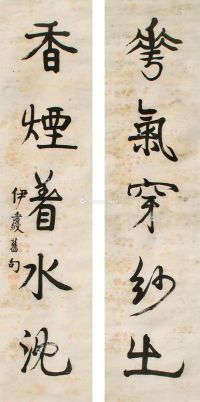 華氣穿紗出
香煙着水沈
伊 舊句